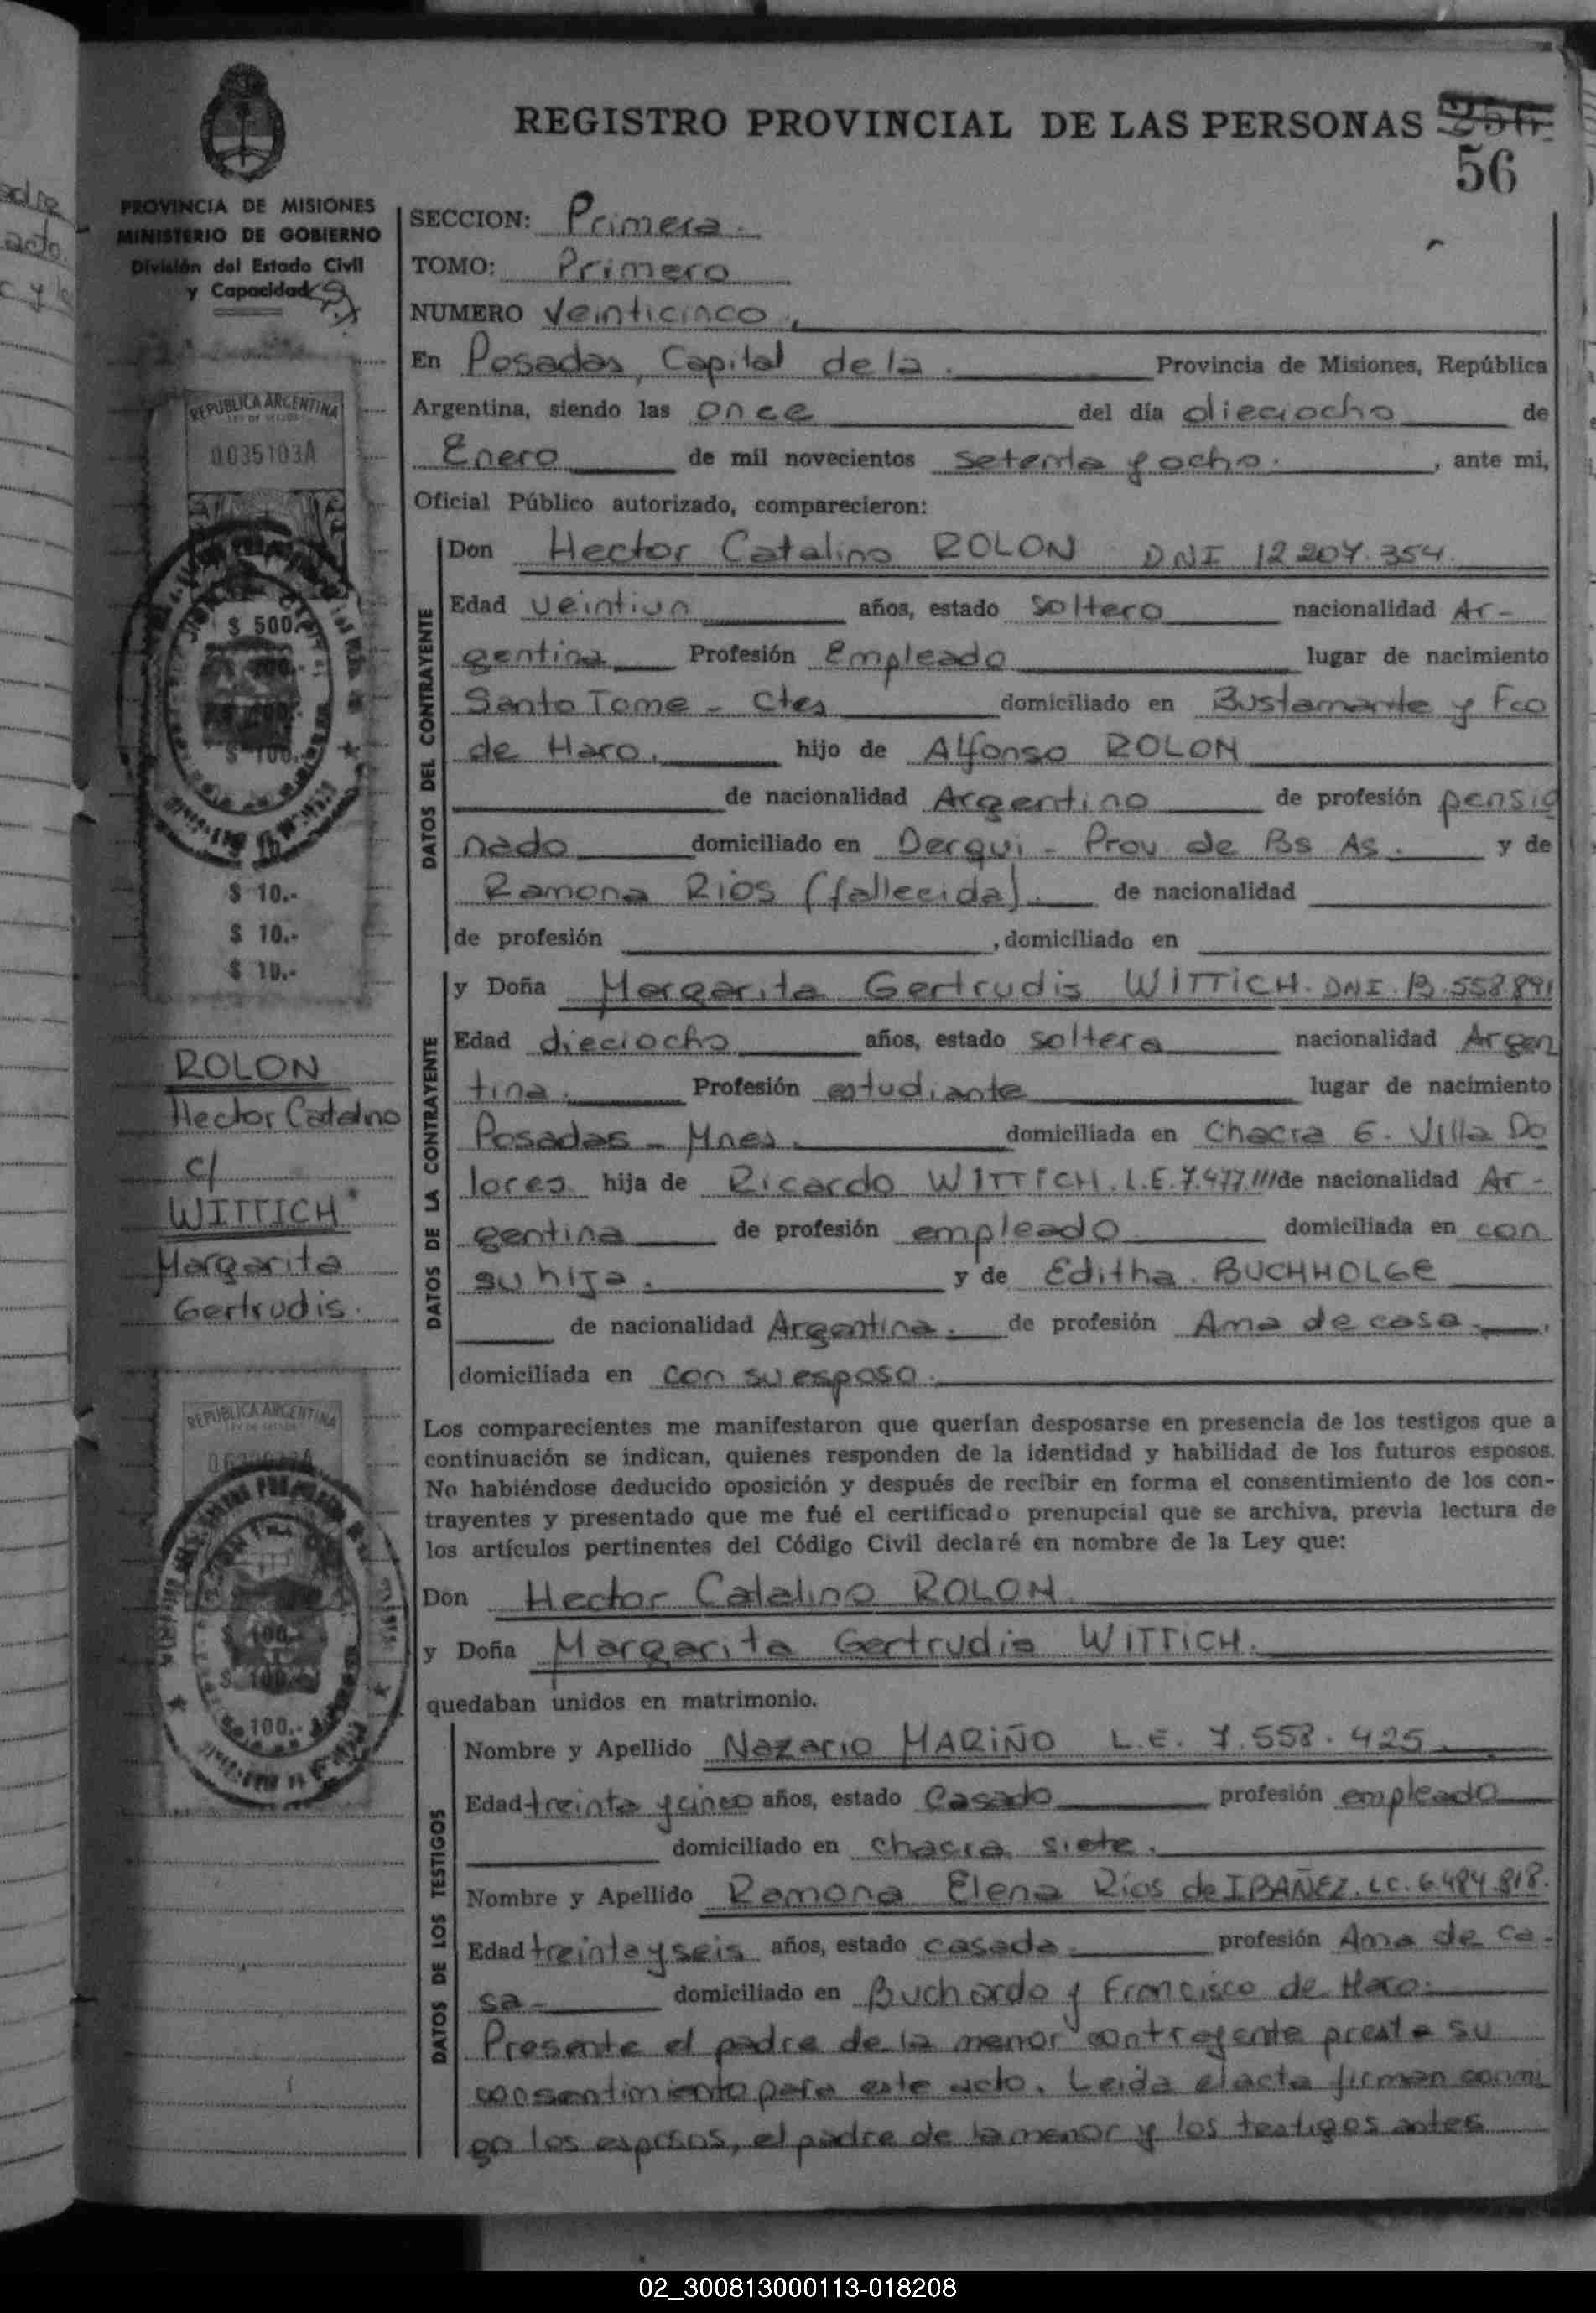 REGISTRO PROVINCIAL DE LAS PERSONAS
56
PROVINCIA DE MISIONES
MINISTERIO DE GOBIERNO
División del Estado Civil
y Capacidad
SECCION: Primera.
TOMO: Primero
NUMERO Veinticinco,
En Posadas, Capital de la. Provincia de Misiones, República
Argentina, siendo las once del día dieciocho de
Enero de mil novecientos setenta y ocho. , ante mi,
Oficial Público autorizado, comparecieron:
DATOS DEL CONTRAYENTE
Don Hector Catalino ROLON DNI 12.207.354.
Edad veintiun años, estado soltero nacionalidad Ar-
gentina Profesión Empleado lugar de nacimiento
Santo Tome - Ctes domiciliado en Bustamante y Fco
de Haro, hijo de Alfonso ROLON
de nacionalidad Argentino de profesión pensio
nado domiciliado en Derqui - Prov de Bs As. y de
Ramona Rios (fallecida). de nacionalidad
de profesión , domiciliado en
DATOS DE LA CONTRAYENTE
y Doña Margarita Gertrudis WITTICH. DNI. 13.558.891
Edad dieciocho años, estado soltera nacionalidad Argen
tina. Profesión estudiante lugar de nacimiento
Posadas - Mnes. domiciliada en Chacra 6. Villa Do
lores hija de Ricardo WITTICH. L.E. 7.477.111 de nacionalidad Ar-
gentina de profesión empleado domiciliada en con
su hija. y de Editha. BUCHHOLGE
de nacionalidad Argentina. de profesión Ama de casa.,
domiciliada en con su esposo.
Los comparecientes me manifestaron que querían desposarse en presencia de los testigos que a
continuación se indican, quienes responden de la identidad y habilidad de los futuros esposos.
No habiéndose deducido oposición y después de recibir en forma el consentimiento de los con-
trayentes y presentado que me fué el certificado prenupcial que se archiva, previa lectura de
los artículos pertinentes del Código Civil declaré en nombre de la Ley que:
Don Hector Catalino ROLON
y Doña Margarita Gertrudis WITTICH.
quedaban unidos en matrimonio.
DATOS DE LOS TESTIGOS
Nombre y Apellido Nazario MARIÑO L.E. 7.558.425.
Edad treinta y cinco años, estado Casado profesión empleado
domiciliado en chacra siete.
Nombre y Apellido Ramona Elena Rios de IBAÑEZ. LC. 6.484.818.
Edad treinta y seis años, estado casada. profesión Ama de ca-
sa- domiciliado en Buchardo y Francisco de Haro.
Presente el padre de la menor contrayente presta su
consentimiento para este acto. Leida el acta firman conmi
go los esposos, el padre de la menor y los testigos antes
REPUBLICA ARGENTINA
0035103A
$ 500
$ 100.
$ 10.-
$ 10.-
$ 10.-
ROLON
Hector Catalino
c/
WITTICH
Margarita
Gertrudis.
REPUBLICA ARGENTINA
100.-
$ 100.-
100.-
02_300813000113-018208